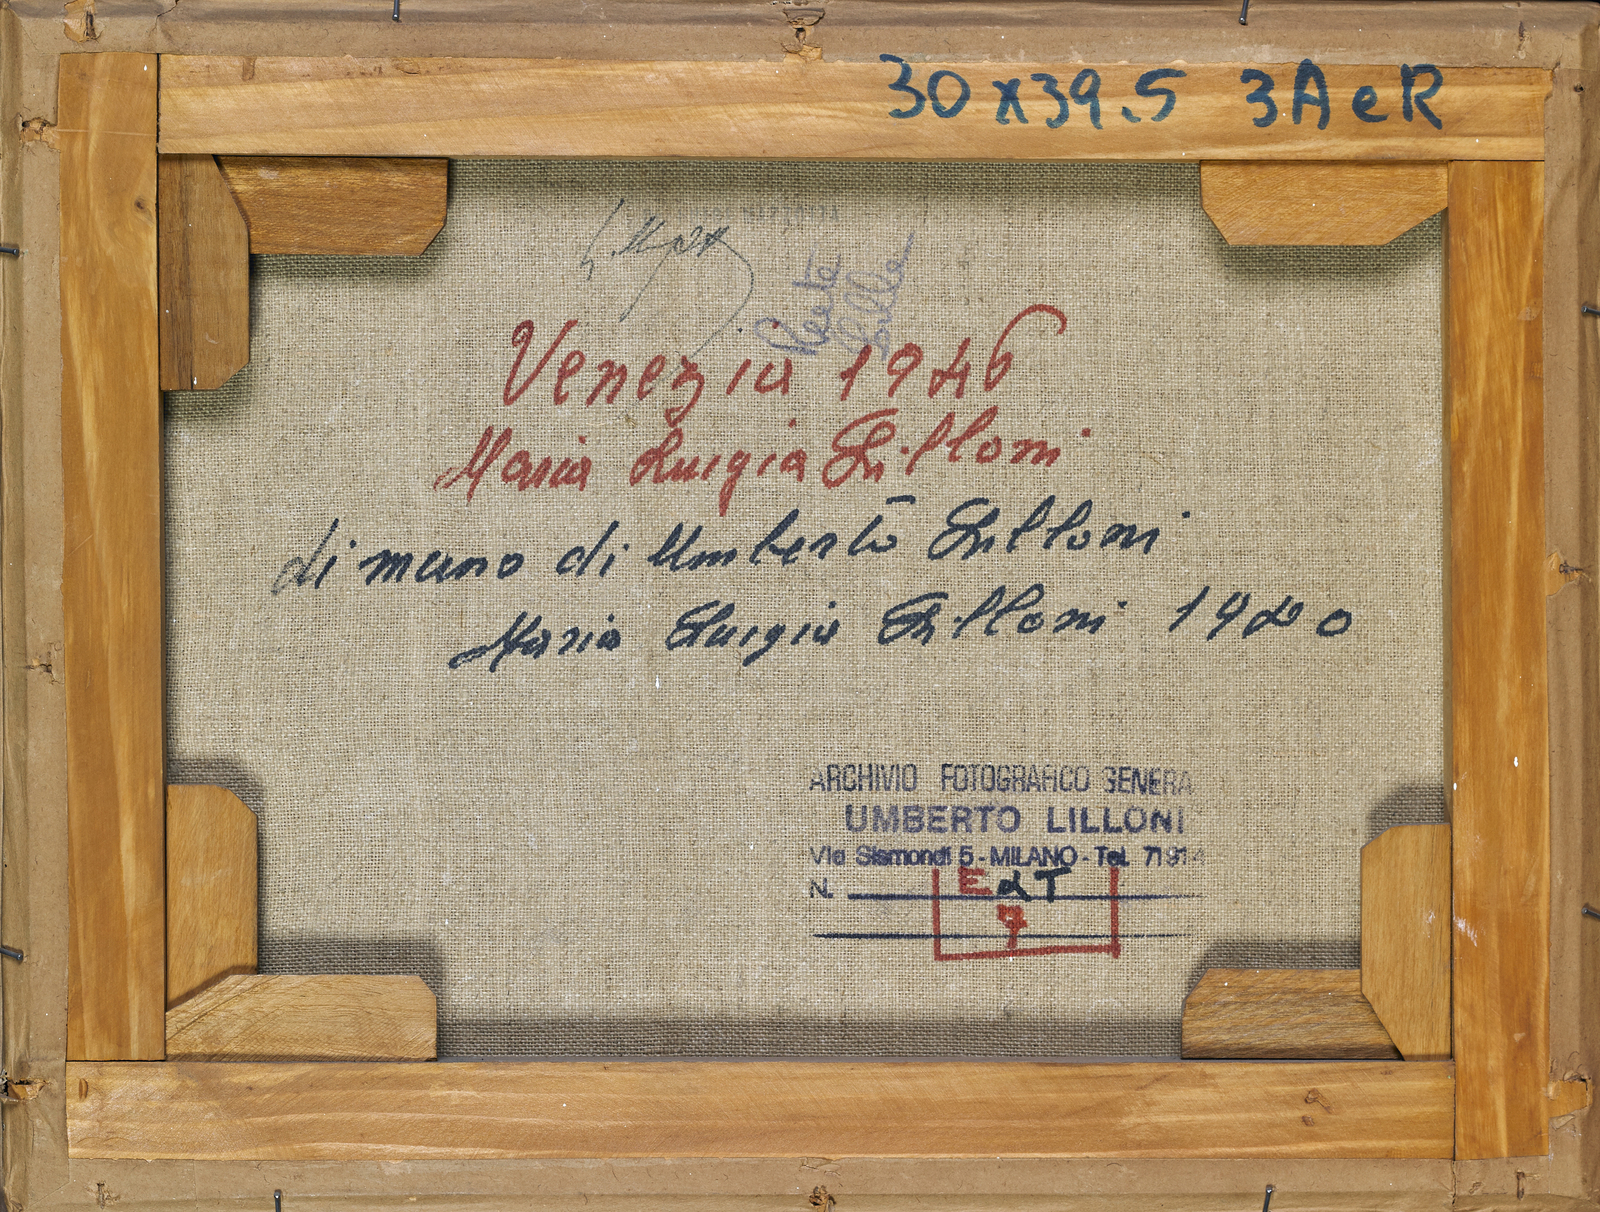 30x39.5 3AeR
Venezia 1946
Maria Luigia Lilloni
di mano di Umberto Lilloni
Maria Luigia Lilloni 1980
ARCHIVIO FOTOGRAFICO GENERA
UMBERTO LILLONI
Via Sismondi 5 - MILANO - Tel. 71914
N. E d T
7